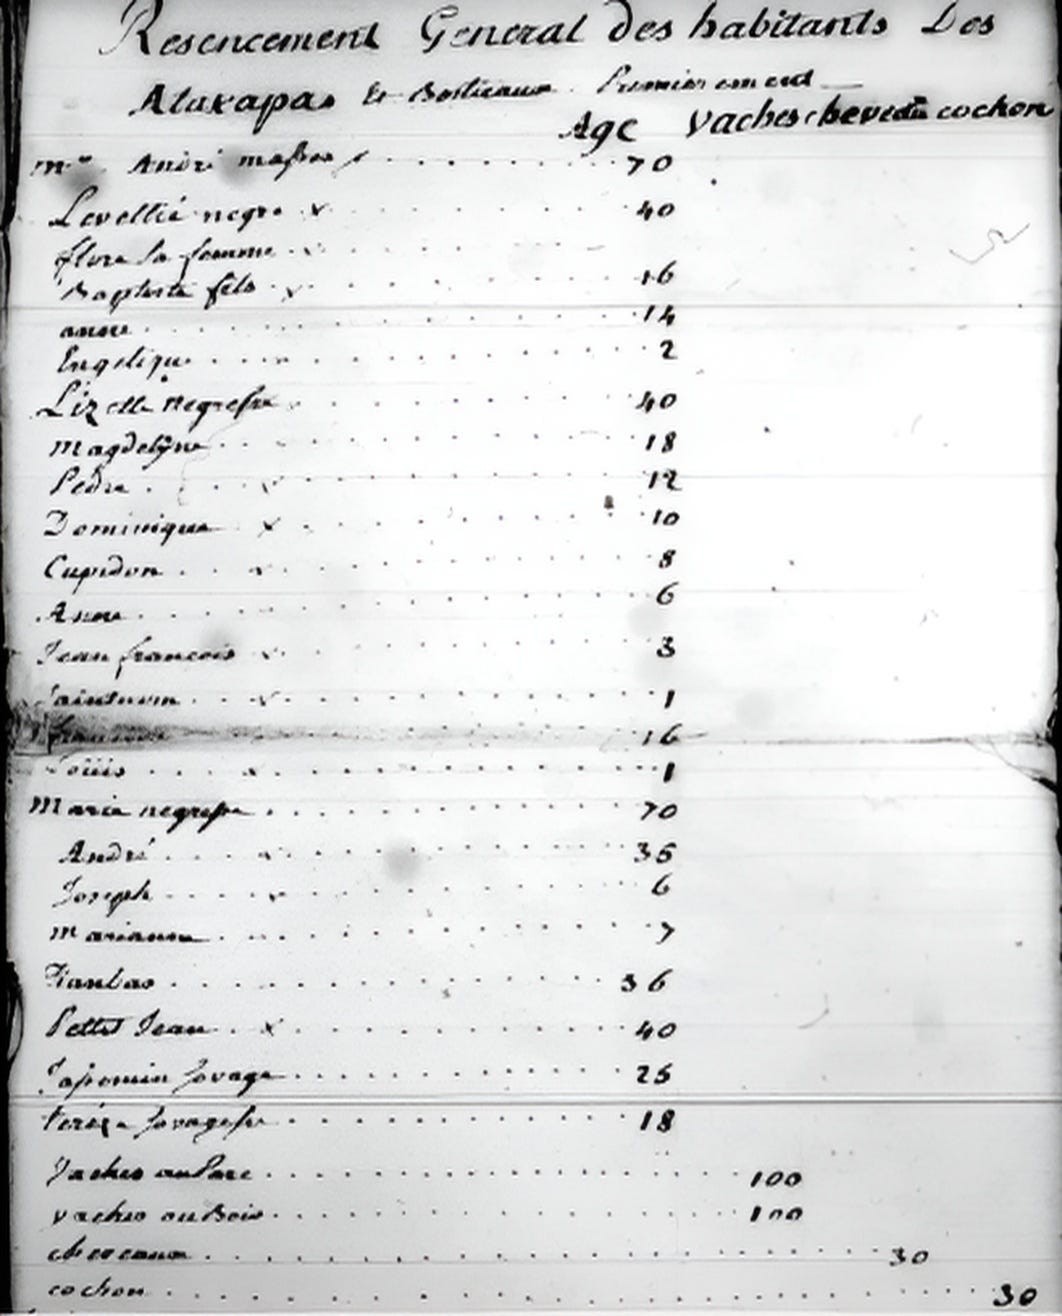 Resencement General des habitants Des
Atakapas Et Bestieaux Premierement
Age Vaches cheveau cochon
mr. André masse 70
Levellié negre x 40
flore sa femme
Baptiste fils 16
anne 14
Engelique 2
Lizette negresse 40
Magdelene 18
Pedre 12
Dominique x 10
Cupidon 8
Anne 6
Jean francois 3
1
16
Loüis 1
Maria negresse 70
André 35
Joseph 6
marianne 7
36
Pettit Jean x 40
sovage 25
sovagesse 18
Vaches au Parc 100
vaches au Bois 100
cheveaux 30
cochon 30